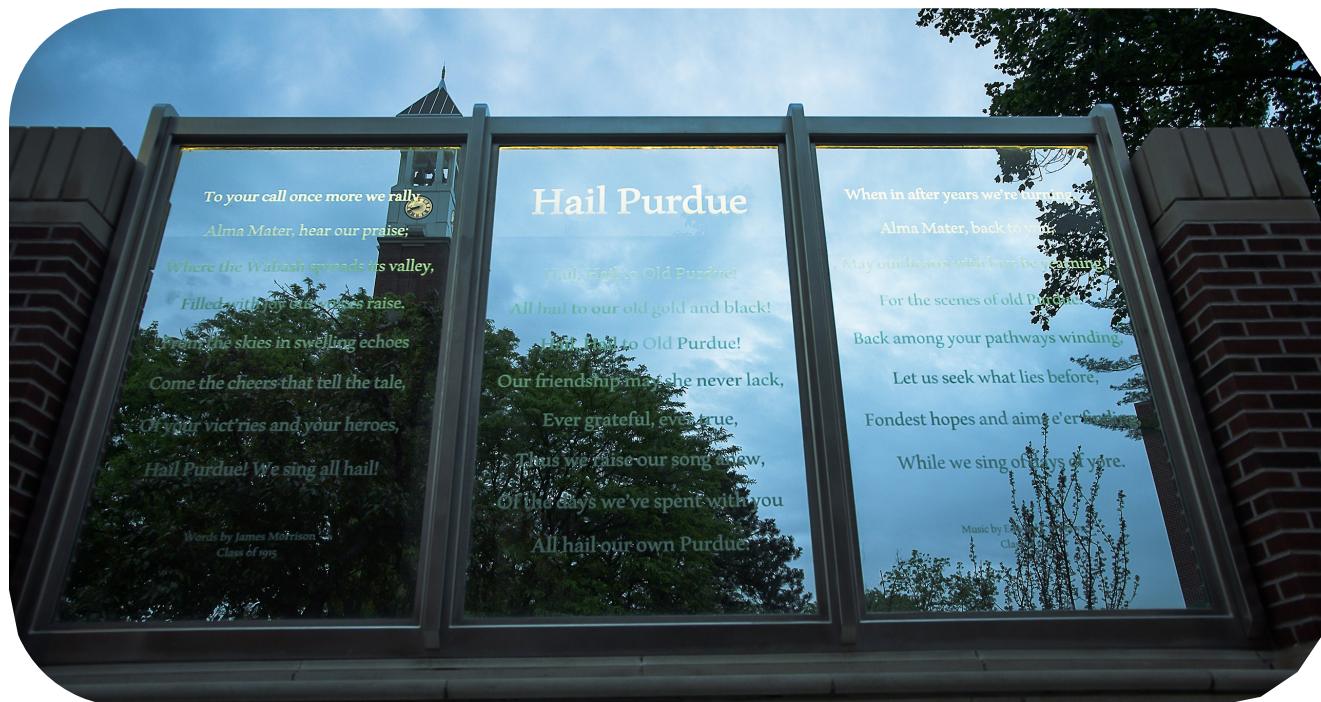 To your call once more we rally,
Alma Mater, hear our praise;
Where the Wabash spreads its valley,
Filled with joy our voices raise.
From the skies in swelling echoes
Come the cheers that tell the tale,
Of your vict'ries and your heroes,
Hail Purdue! We sing all hail!
Words by James Morrison
Class of 1915
Hail Purdue
Hail, Hail to Old Purdue!
All hail to our old gold and black!
Hail, Hail to Old Purdue!
Our friendship may she never lack,
Ever grateful, ever true,
Thus we raise our song anew,
Of the days we've spent with you
All hail our own Purdue.
When in after years we're turning,
Alma Mater, back to you,
May our hearts with love be yearning,
For the scenes of old Purdue.
Back among your pathways winding,
Let us seek what lies before,
Fondest hopes and aims e'er finding,
While we sing of days of yore.
Music by